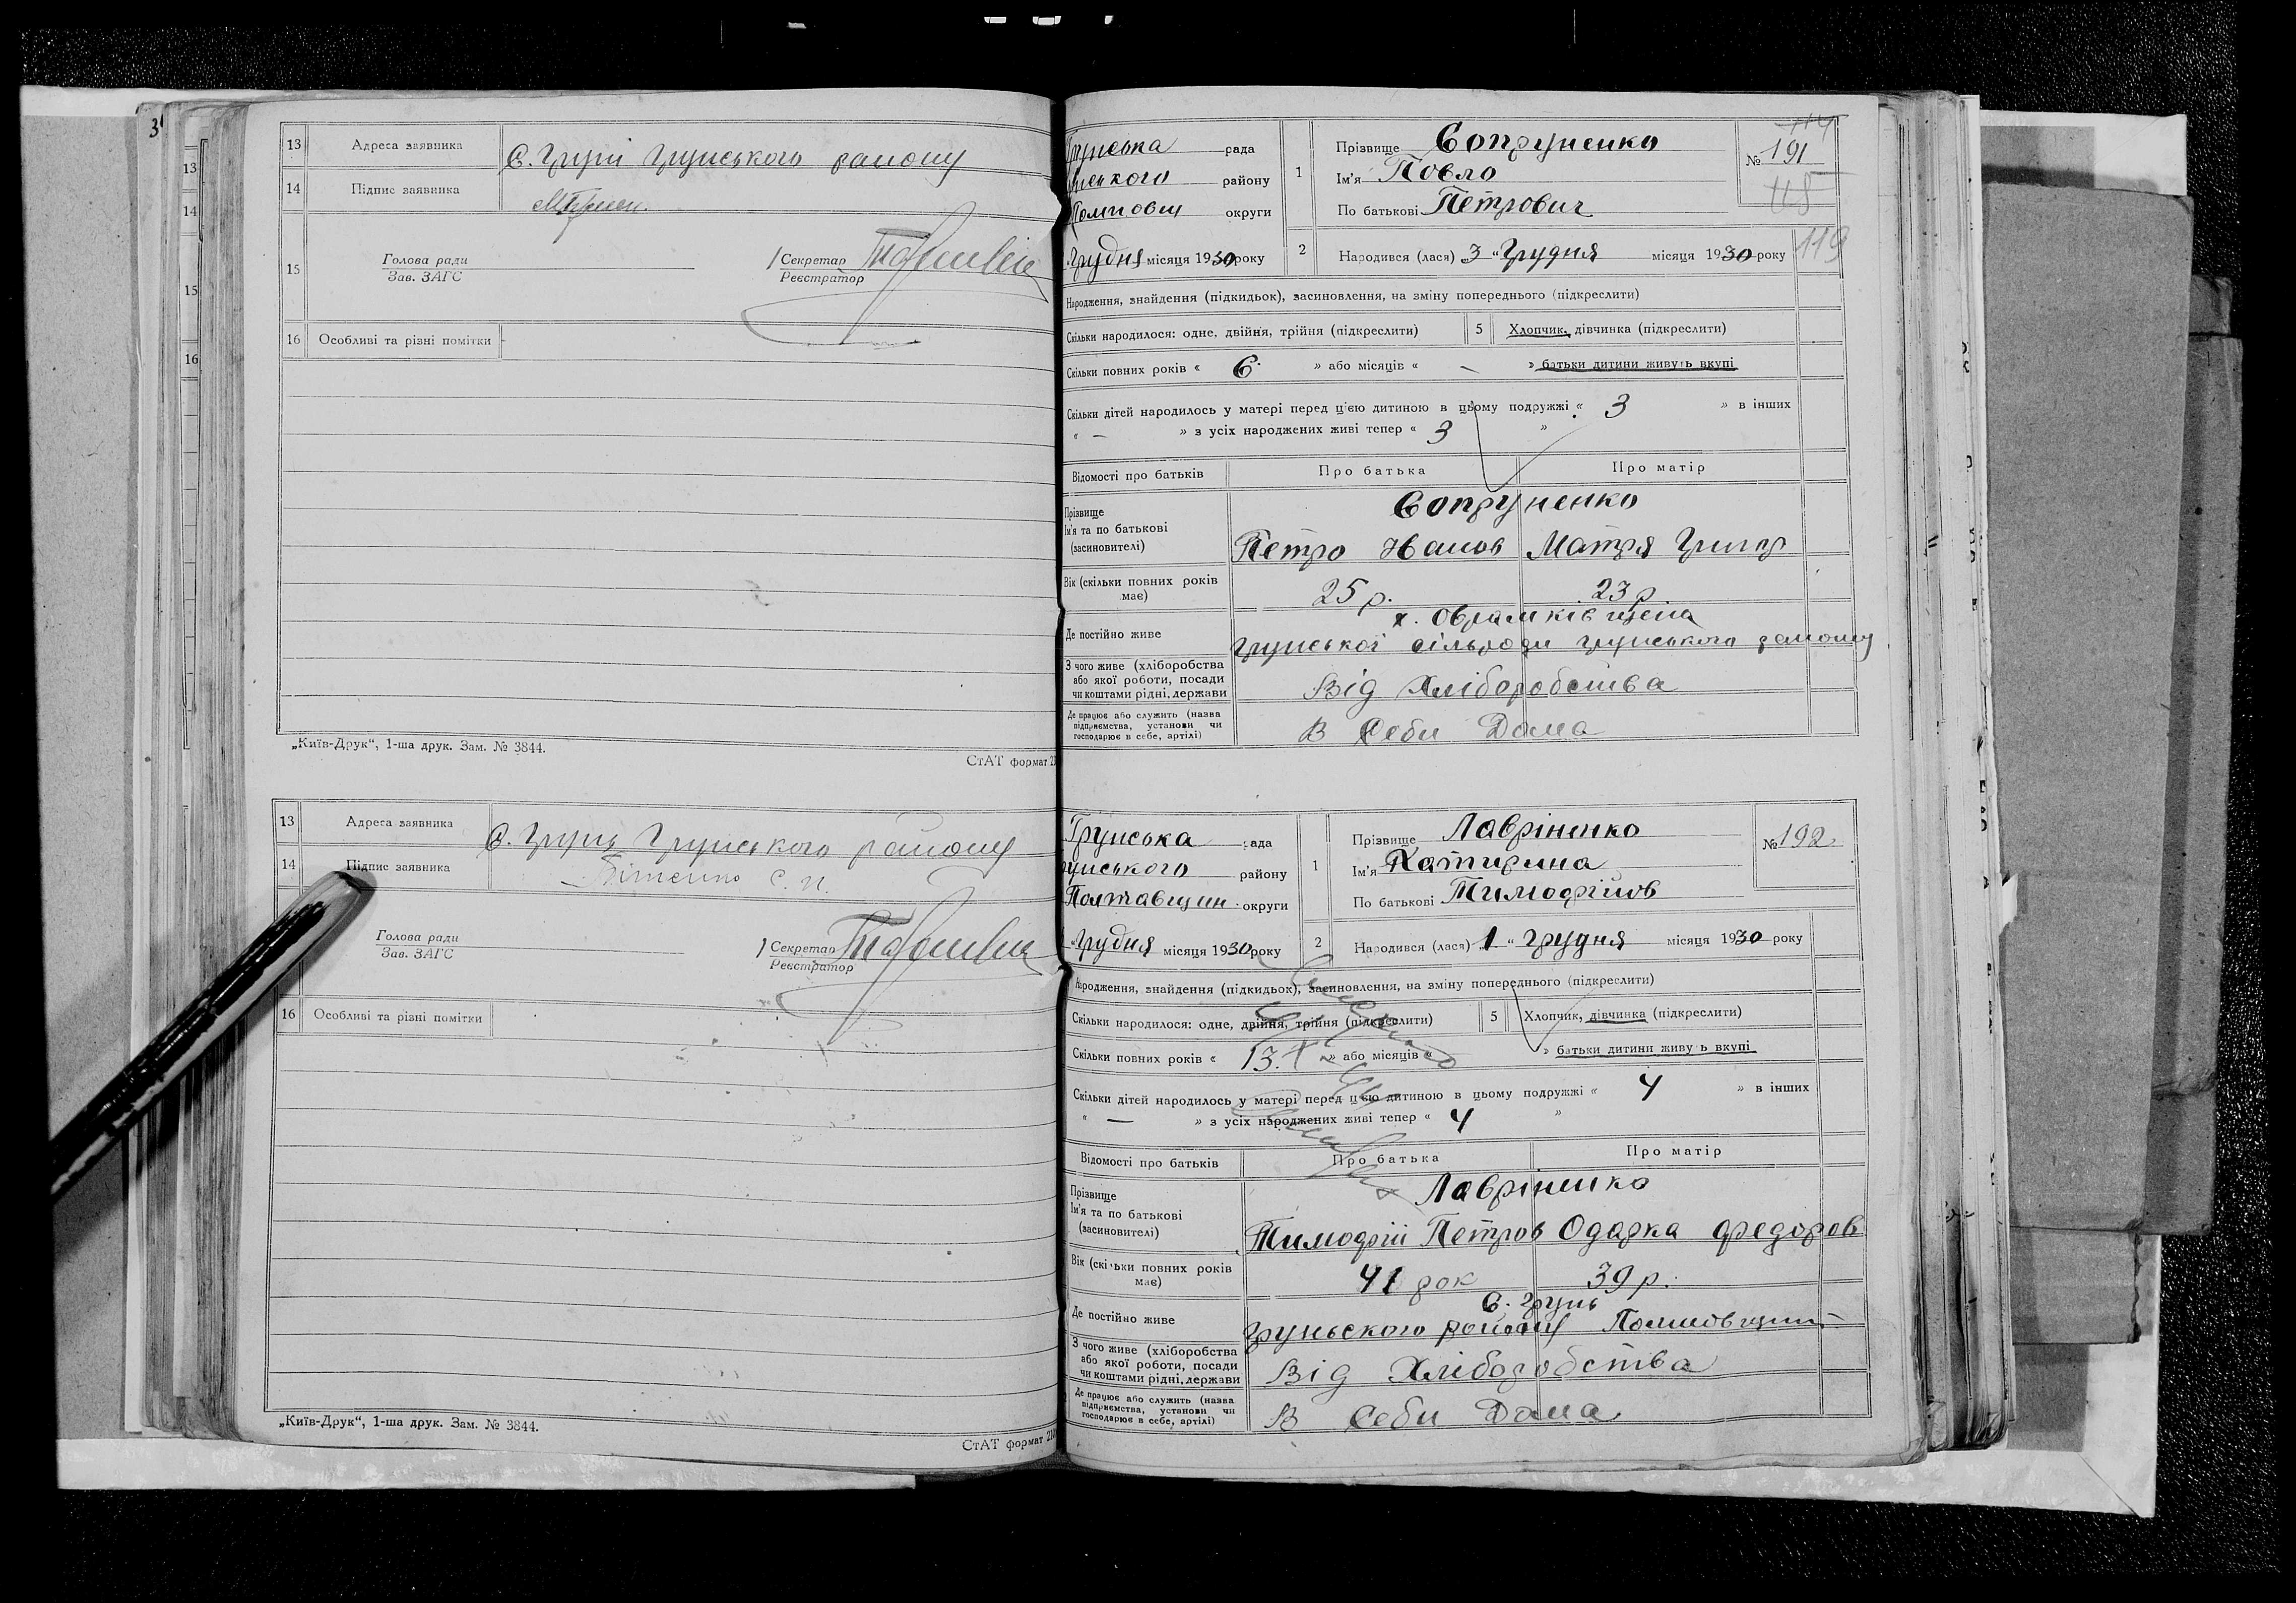 3
13
14
15
16
13 Адреса заявника с. Груні Грунського району
14 Підпис заявника
15 Голова ради
Зав. ЗАГС
Секретар
Реєстратор
16 Особливі та різні помітки
„Київ-Друк“, 1-ша друк. Зам. № 3844.
СтАТ формат
13 Адреса заявника с. Грунь Грунського району
14 Підпис заявника
Голова ради
Зав. ЗАГС
Секретар
Реєстратор
16 Особливі та різні помітки
„Київ-Друк“, 1-ша друк. Зам. № 3844.
СтАТ формат
Грунська рада
нського району
округи
Грудня місяця 1930 року
1 Прізвище Сопруненко
Ім'я Повло
По батькові Петрович
№ 191
114
115
119
2 Народився (лася) 3 “ Грудня місяця 1930 року
Народження, знайдення (підкидьок), засиновлення, на зміну попереднього (підкреслити)
Скільки народилося: одне, двійня, трійня (підкреслити) 5 Хлопчик, дівчинка (підкреслити)
Скільки повних років « 6 » або місяців « – » батьки дитини живуть вкупі
Скільки дітей народилось у матері перед цією дитиною в цьому подружжі « 3 » в інших
« – » з усіх народжених живі тепер « 3 »
Відомості про батьків Про батька Про матір
Прізвище Сопруненко
Ім'я та по батькові
(засиновителі) Петро Иванов Мотря Григор
Вік (скільки повних років
має) 25 р. 23 р
х. Обрамківщена
Де постійно живе Грунської сільроди Грунського району
З чого живе (хліборобства
або якої роботи, посади
чи коштами рідні, держави Від Хліборобства
Де працює або служить (назва
підприємства, установи чи
господарює в себе, артілі) В Себи Дома
Грунська рада
рунського району
Полтавщин. округи
Грудня місяця 1930 року
1 Прізвище Лавріненко
Ім'я Катирина
По батькові Тимофійов
№ 192
2 Народився (лася) 1 “ Грудня місяця 1930 року
Народження, знайдення (підкидьок), засиновлення, на зміну попереднього (підкреслити)
Скільки народилося: одне, двійня, трійня (підкреслити) 5 Хлопчик, дівчинка (підкреслити)
Скільки повних років « 13 » або місяців « » батьки дитини живуть вкупі
Скільки дітей народилось у матері перед цією дитиною в цьому подружжі « 4 » в інших
« – » з усіх народжених живі тепер « 4 »
Відомості про батьків Про батька Про матір
Прізвище Лавріненко
Ім'я та по батькові
(засиновителі) Тимофій Петров Одарка Федоров
Вік (скільки повних років
має) 41 рок 39 р.
с. Грунь
Де постійно живе Груньского району Полтовщини
З чого живе (хліборобства
або якої роботи, посади
чи коштами рідні, держави Від Хліборобства
Де працює або служить (назва
підприємства, установи чи
господарює в себе, артілі) В Себи Дома